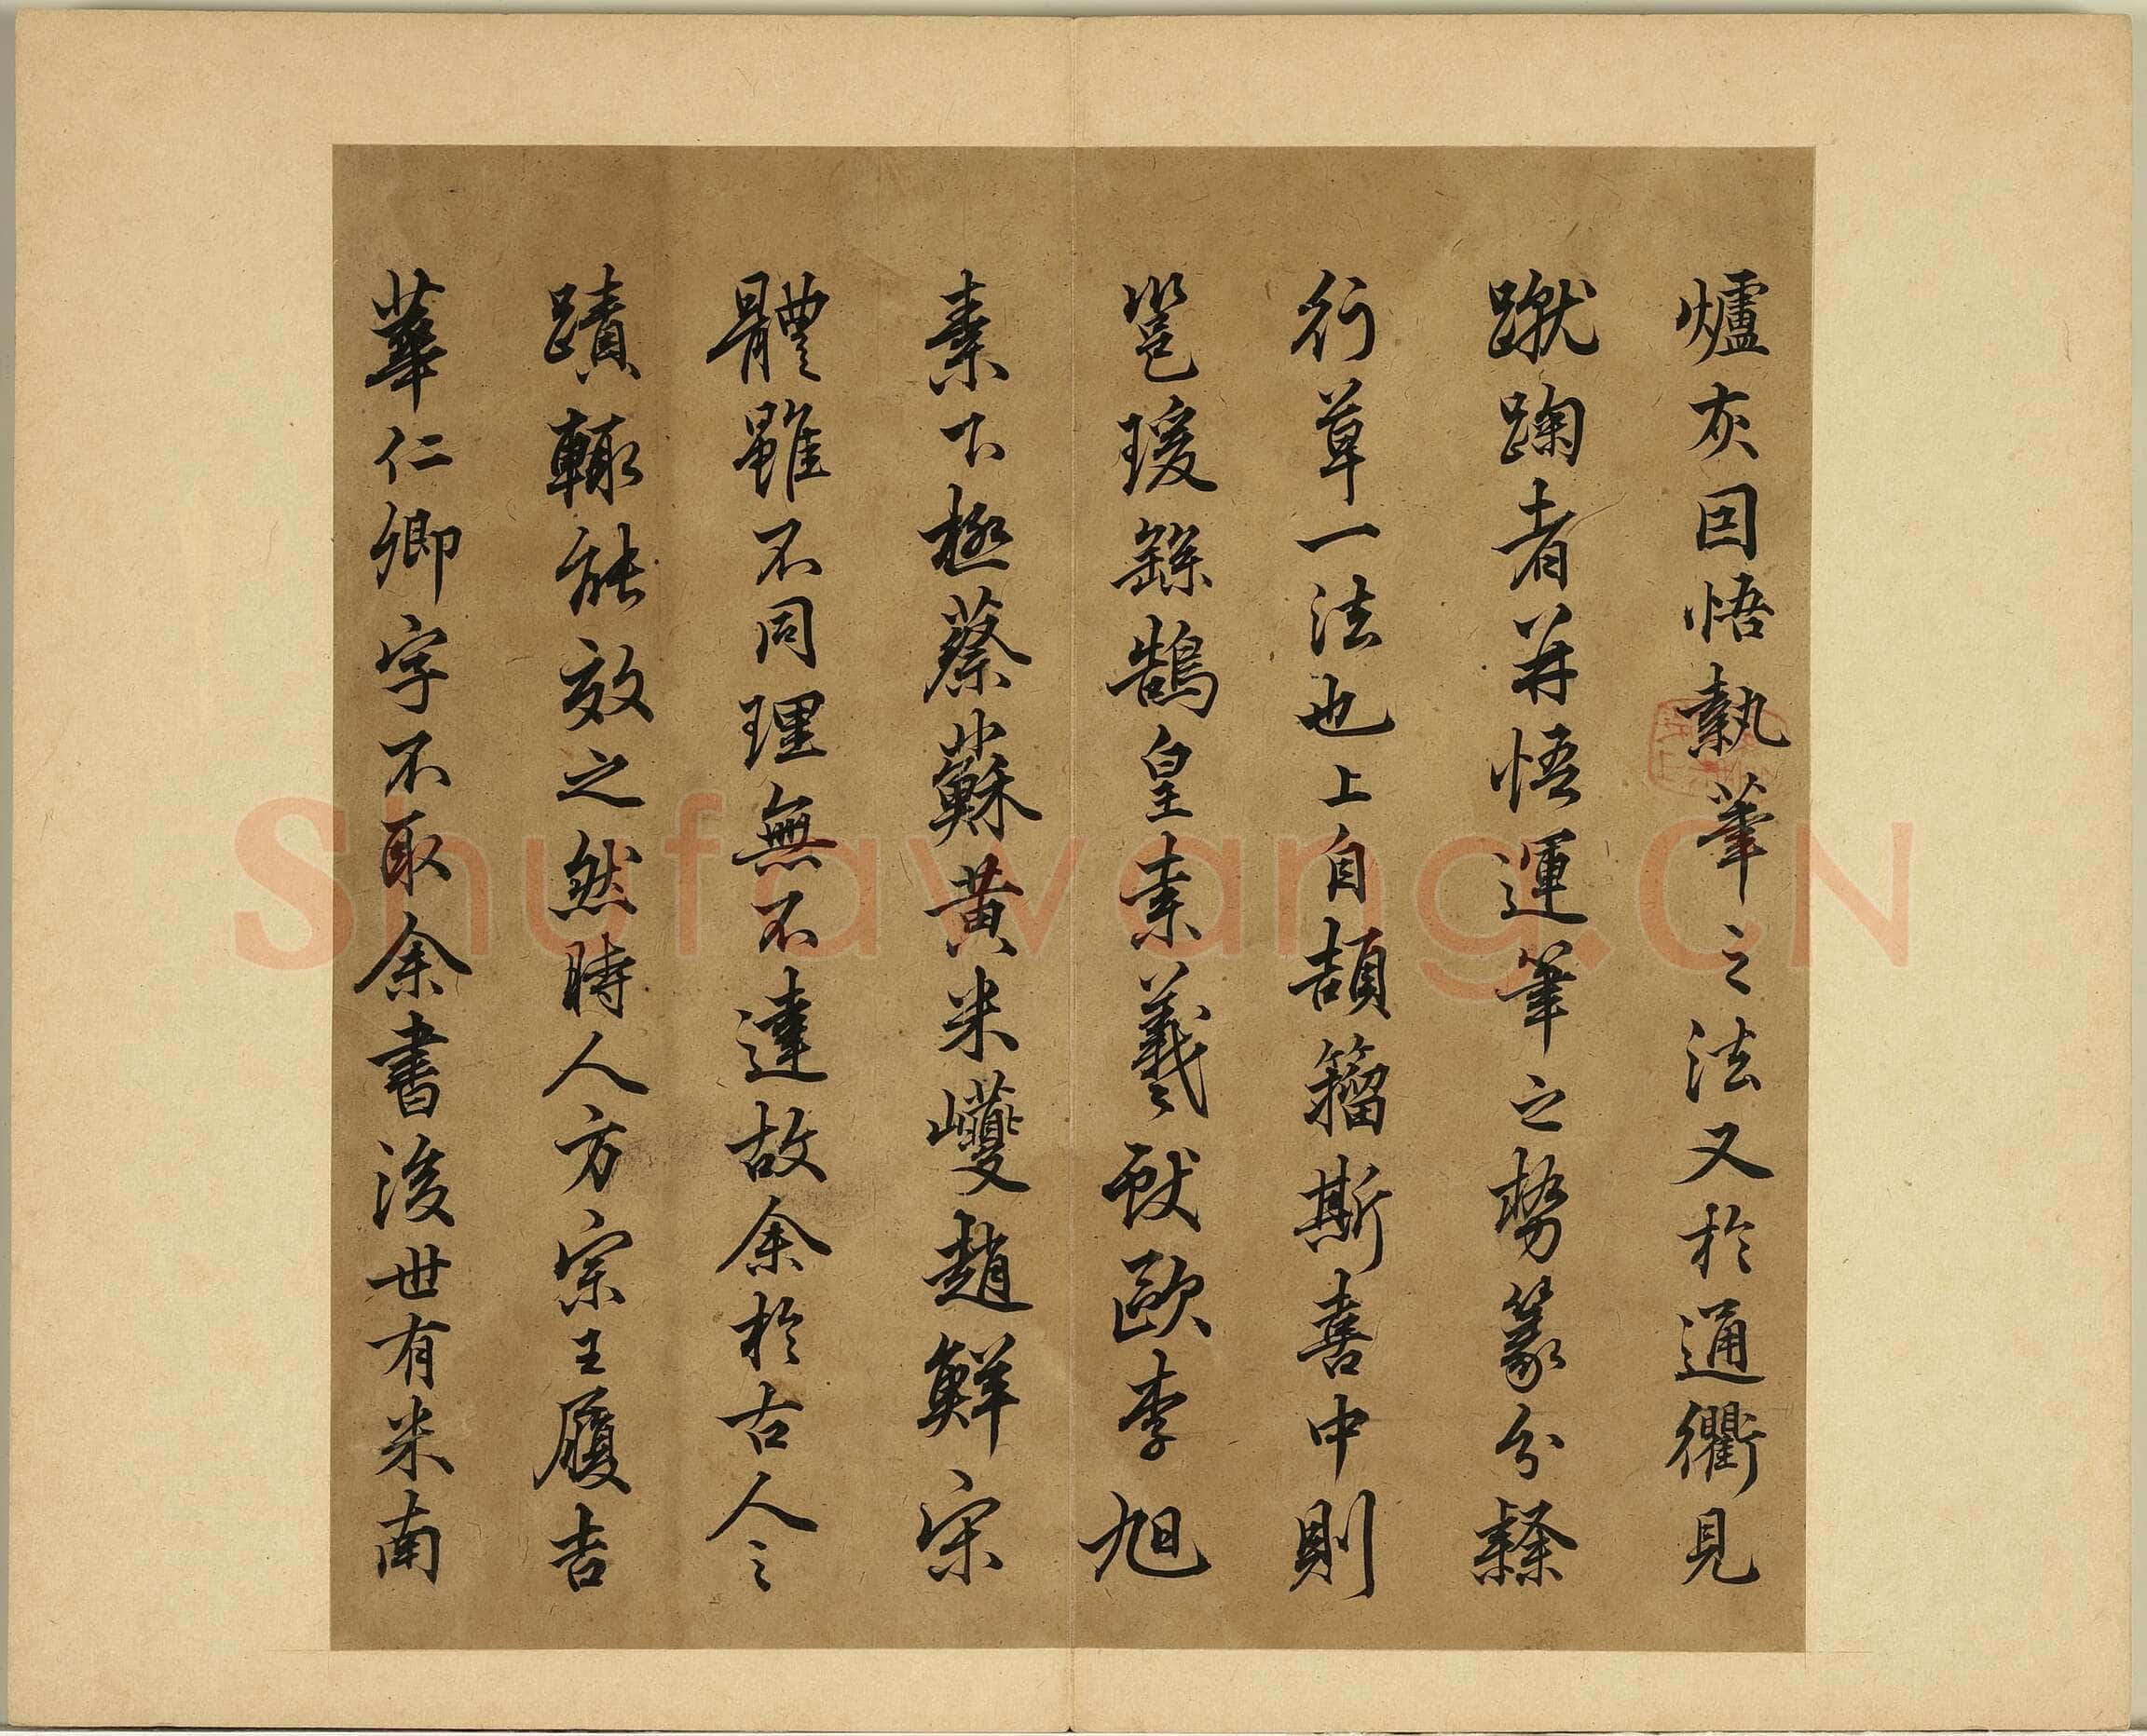 爐灰因悟執筆之法又於通衢見
蹴踘者并悟運筆之勢篆分隸
行草一法也上自頡籀斯喜中則
邕瑗繇鵠皇索羲獻歐李旭
素下極蔡蘇黃米巙趙鮮宋
體雖不同理無不達故余於古人之
蹟輒能效之然時人方宗王履吉
華仁卿字不取余書後世有米南
Shufawang.CN